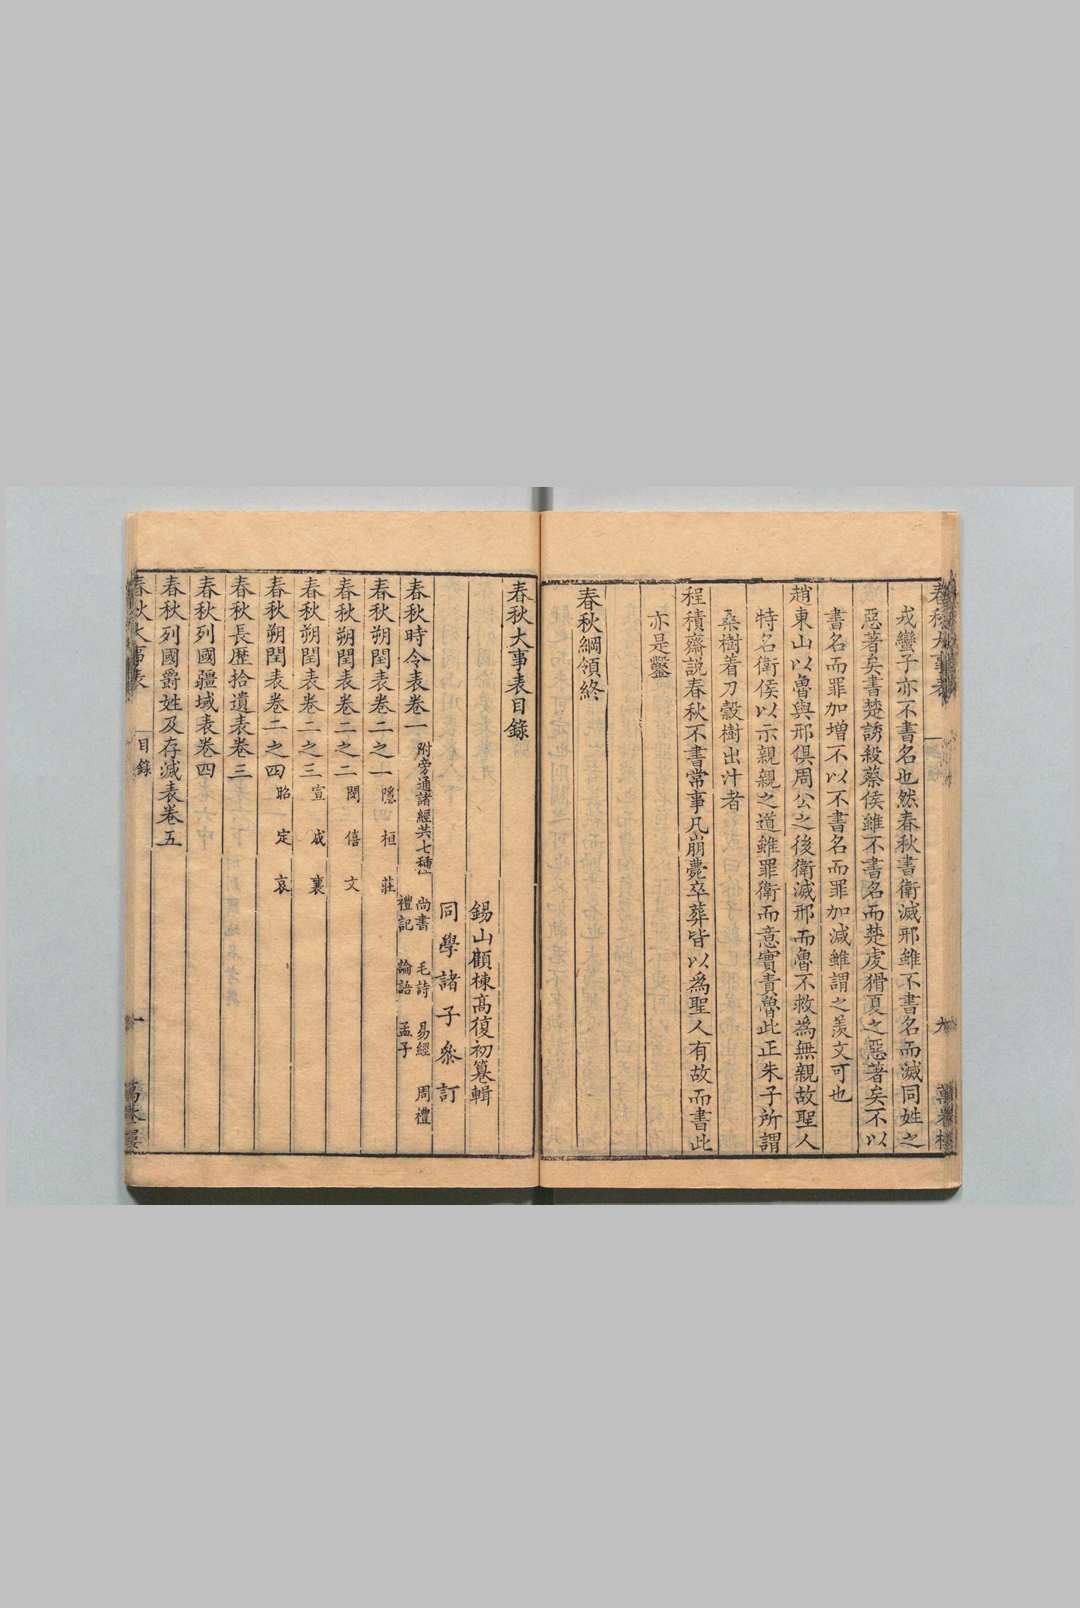 戎蠻子亦不書名也然春秋書衛滅邢雖不書名而滅同姓之
惡著矣書楚誘殺蔡侯雖不書名而楚虔猾夏之惡著矣不以
書名而罪加增不以不書名而罪加減雖謂之羨文可也
趙東山以魯與邢俱周公之後衛滅邢而魯不救為無親故聖人
特名衛侯以示親親之道雖罪衛而意實責魯此正朱子所謂
桑樹着刀穀樹出汁者
程積齋說春秋不書常事凡崩薨卒葬皆以為聖人有故而書此
亦是鑿
春秋綱領終
春秋大事表目錄
錫山顧棟高復初纂輯
同學諸子叅訂
春秋時令表卷一 附旁通諸經共七種 尚書 毛詩 易經 周禮
禮記 論語 孟子
春秋朔閏表卷二之一 隱 桓 莊
春秋朔閏表卷二之二 閔 僖 文
春秋朔閏表卷二之三 宣 成 襄
春秋朔閏表卷二之四 昭 定 哀
春秋長歷拾遺表卷三
春秋列國疆域表卷四
春秋列國爵姓及存滅表卷五
春秋大事表 目錄 一 萬卷樓